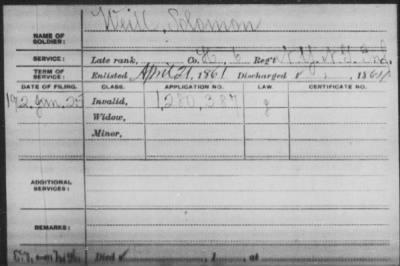 NAME OF SOLDIER: Weill, Solomon
SERVICE: Late rank, Co. 6 Reg't N.Y. N.G. Inf.
TERM OF SERVICE: Enlisted April 21, 1861 Discharged , 1861
DATE OF FILING. CLASS. APPLICATION NO. LAW. CERTIFICATE NO.
1902 Jan. 25 Invalid, 1,280,387 g
Widow,
Minor,
ADDITIONAL SERVICES:
REMARKS:
Died , 1 , at